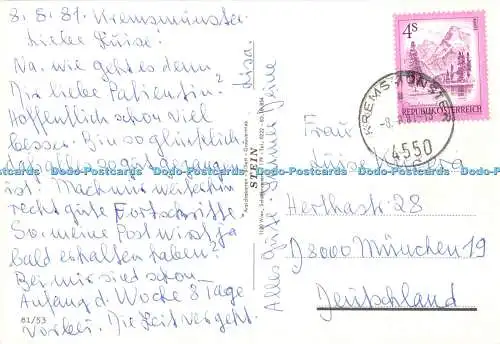 8.5.81. Kremsmünster
Liebe Luise!
Na, wie geht es denn
Dir liebe Patientin?
Hoffentlich schon viel
besser. Bin so glücklich,
daß alles so gut gegangen
ist. Mach nur weiterhin
recht gute Fortschritte.
So, meine Post wirst ja
bald erhalten haben?
Bei mir sind schon
Anfang d. Woche 8 Tage
vorbei. Die Zeit vergeht.
81/53
Lisa.
Alles Gute Deine
STEIN
4S
REPUBLIK ÖSTERREICH
KREMSMÜNSTER
4550
Frau
Luise
Herthastr 28
D 8000 München 19
Deutschland
Dodo-Postcards Dodo-Postcards Dodo-Postcards Dodo-Postcards Dodo-Postcards Dodo-Postcards